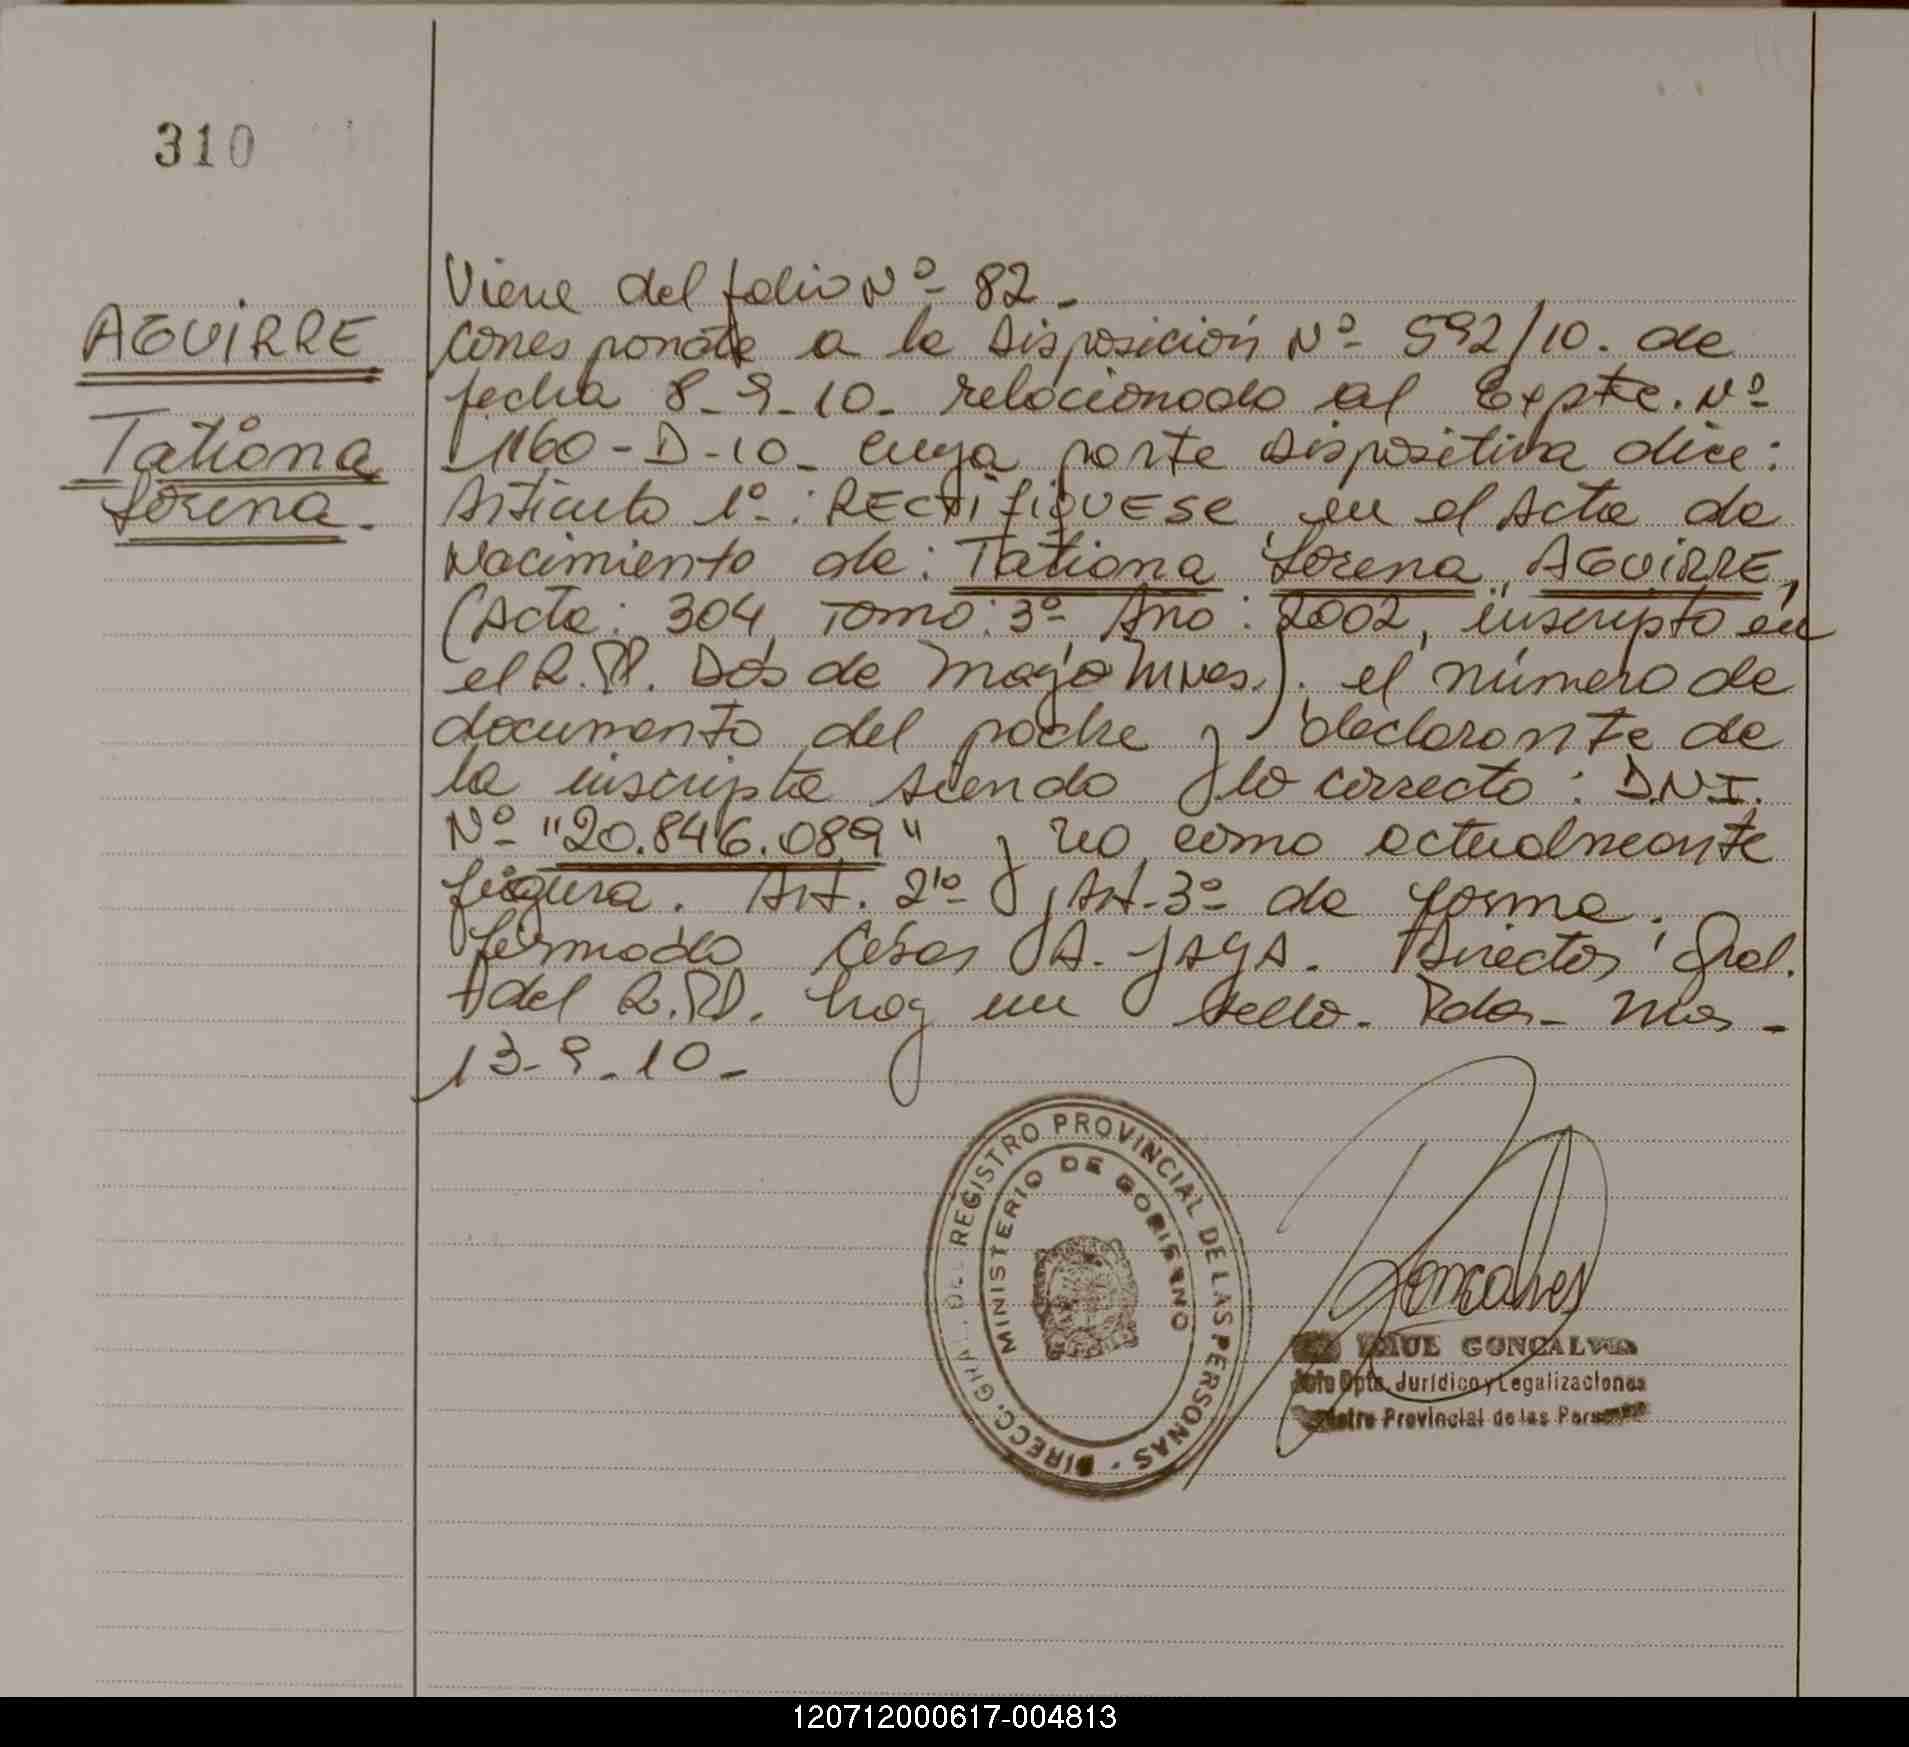 310
AGUIRRE
Tatiana
Lorena.
Viene del folio Nº 82.-
Corresponde a la Disposición Nº 592/10. de
fecha 8-9-10- relacionado al Expte. Nº
1160-D-10- cuya parte dispositiva dice:
Artículo 1º: RECTIFIQUESE en el Acta de
Nacimiento de: Tatiana Lorena AGUIRRE,
(Acta: 304, Tomo: 3º Año: 2002, inscripto en
el R.P. Dos de Mayo Mnes.). el número de
documento del padre y declarante de
la inscripta siendo lo correcto: D.N.I.
Nº "20.846.089" y no como actualmente
figura. Art. 2º y Art. 3º de forma.
firmado César A. JAYA. Director Gral.
del R.P. hay un sello. Pdas- Mnes-
13-9-10-
DIRECC. GRAL. DEL REGISTRO PROVINCIAL DE LAS PERSONAS
MINISTERIO DE GOBIERNO
Goncalves
GONCALVES
Jefe Dpto. Jurídico y Legalizaciones
Registro Provincial de las Personas
120712000617-004813